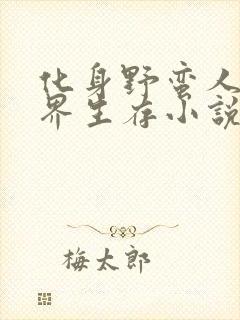 化身野蛮人
界生存小説
梅太郎